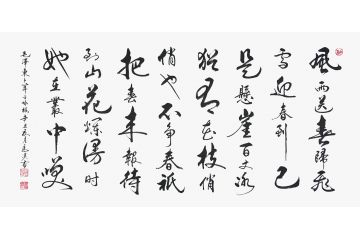 風雨送春歸飛
雪迎春到已
是懸崖百丈冰
猶有花枝俏
俏也不争春祇
把春來報待
到山花爛漫時
她在叢中咲
毛澤東卜算子咏梅